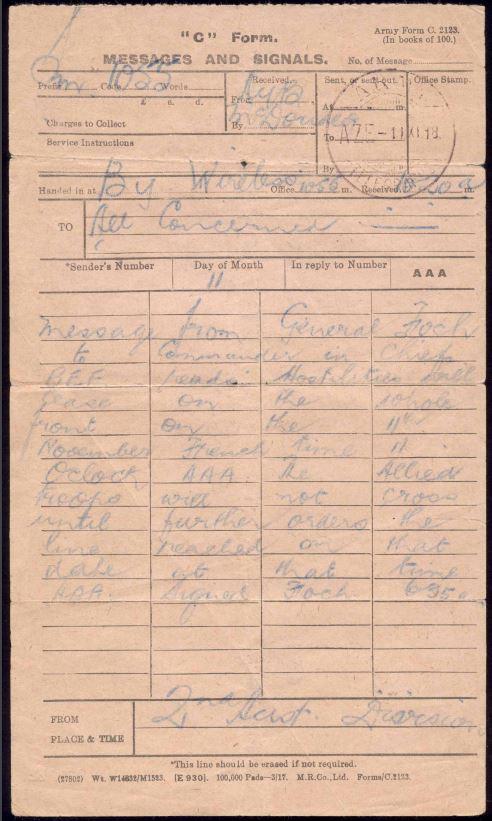 "C" Form.
Army Form C. 2123.
(In books of 100.)
MESSAGES AND SIGNALS.
No. of Message
Prefix Code Words
1053
Received.
Sent, or sent out
Office Stamp.
£ s. d.
From
At m.
Charges to Collect
By
To
AZE -11 XI 18
Service Instructions
By
Handed in at By Wireless Office m. Received m.
TO All Concerned
*Sender's Number
Day of Month
In reply to Number
AAA
11
Message from General Foch
to Commander in Chief
BEF Hostilities will
cease on the whole
front on the 11th
November French time 11
Oclock AAA The Allied
troops will not cross
until further orders the
line reached on that
date at that time
AAA. Signed Foch 635 am
FROM
PLACE & TIME
2nd Aust. Division
*This line should be erased if not required.
(27802) Wt. W14832/M1523. [E 930]. 100,000 Pads—3/17. M.R.Co., Ltd. Forms/C.2123.